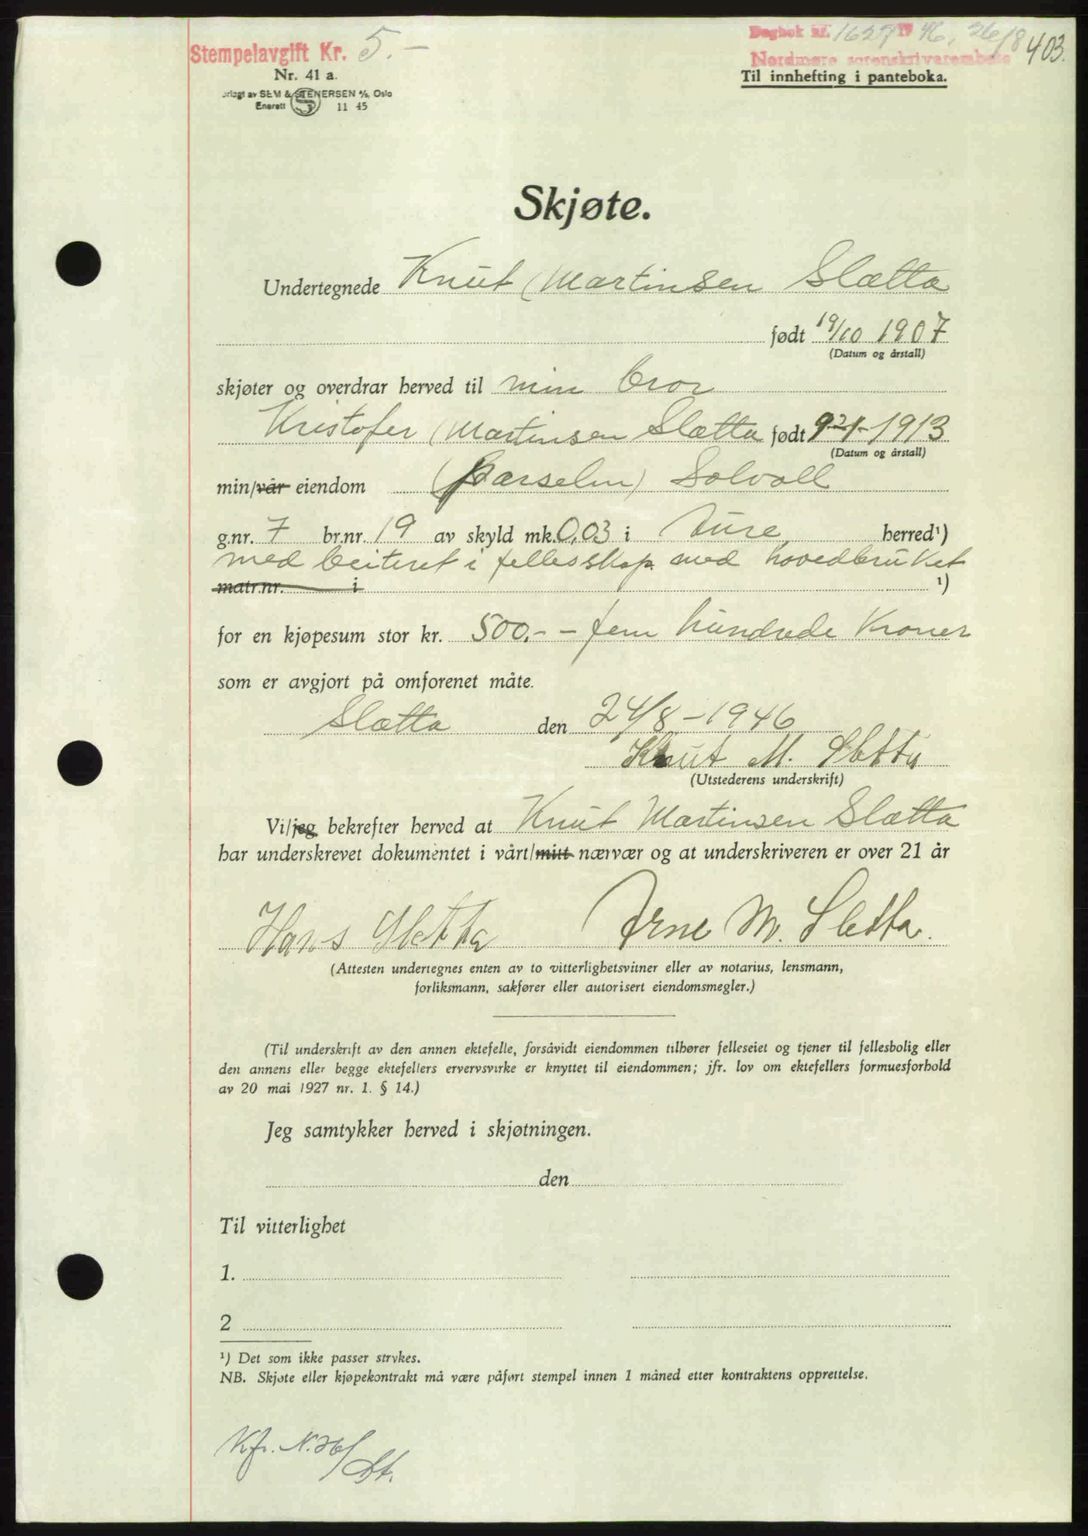 Stempelavgift Kr. 5.-
Dagbok nr. 1627 1946, 26/8
403.
Nordmøre sorenskriverembete
Nr. 41 a.
Til innhefting i panteboka.
orlagt av SEM & STENERSEN A/S, Oslo
Enerett S 11 45
Skjøte.
Undertegnede Knut Martinsen Slætta
født 19/10 1907
(Datum og årstall)
skjøter og overdrar herved til min bror
Kristofer Martinsen Slætta født 1913
(Datum og årstall)
min/vår eiendom (Parselen) Solvoll
g.nr. 7 br.nr. 19 av skyld mk. 0,03 i Aure herred¹)
med beiteret i fellesskap med hovedbruket
matr.nr. i ¹)
for en kjøpesum stor kr. 500.- - fem hundrede Kroner
som er avgjort på omforenet måte.
Slætta den 24/8-1946
Knut M. Sletta
(Utstederens underskrift)
Vi/jeg bekrefter herved at Knut Martinsen Slætta
har underskrevet dokumentet i vårt/mitt nærvær og at underskriveren er over 21 år
Hans Sletta Arne M. Sletta.
(Attesten undertegnes enten av to vitterlighetsvitner eller av notarius, lensmann,
forliksmann, sakfører eller autorisert eiendomsmegler.)
(Til underskrift av den annen ektefelle, forsåvidt eiendommen tilhører felleseiet og tjener til fellesbolig eller
den annens eller begge ektefellers ervervsvirke er knyttet til eiendommen; jfr. lov om ektefellers formuesforhold
av 20 mai 1927 nr. 1. § 14.)
Jeg samtykker herved i skjøtningen.
den
Til vitterlighet
1.
2
¹) Det som ikke passer strykes.
NB. Skjøte eller kjøpekontrakt må være påført stempel innen 1 måned etter kontraktens opprettelse.
Kfr.